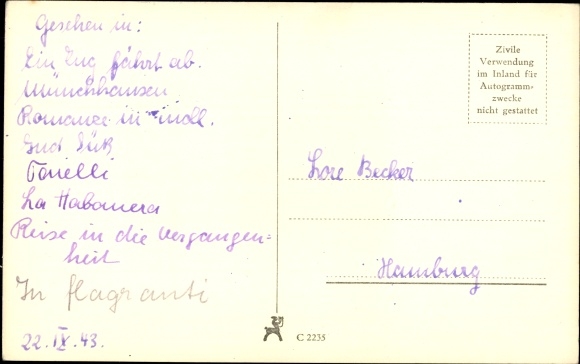 Gesehen in:
Ein Zug fährt ab.
Münchhausen
Romance in moll.
Jud Süß
Tonelli
La Habanera
Reise in die Vergangen-
heit
In flagranti
22. IX. 43.
Zivile
Verwendung
im Inland für
Autogramm-
zwecke
nicht gestattet
Lore Becker
Hamburg
C 2235